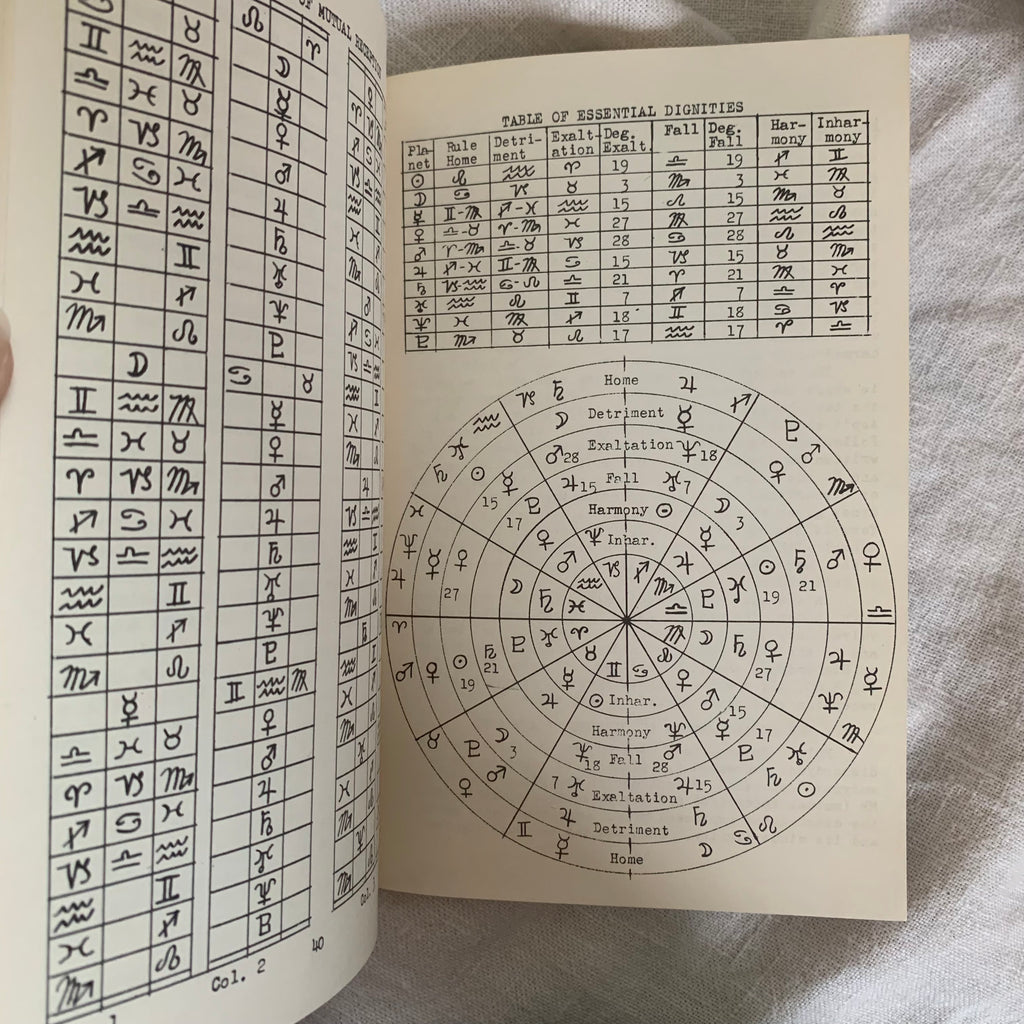 OF MUTUAL
♉
♊ ♒ ♍
♎ ♓ ♉
♈ ♑ ♏
♐ ♋ ♓
♑ ♎ ♒
♒ ♊
♓ ♐
♏ ♌
☽
♊ ♒ ♍
♎ ♓ ♉
♈ ♑ ♏
♐ ♋ ♓
♑ ♎ ♒
♒ ♊
♓ ♐
♏ ♌
☿
♎ ♓ ♉
♈ ♑ ♏
♐ ♋ ♓
♑ ♎ ♒
♒ ♊
♓ ♐
♏ ♌
♌ ♈
☽
☿
♀
♂
♃
♄
♅
♆
♇
♋ ♉
☿
♀
♂
♃
♄
♅
♆
♇
♊ ♒ ♍
♀
♂
♃
♄
♅
♆
♇
Col. 2
40
TABLE OF ESSENTIAL DIGNITIES
Pla-net Rule Home Detri-ment Exalt-ation Deg. Exalt. Fall Deg. Fall Har-mony Inhar-mony
☉ ♌ ♒ ♈ 19 ♎ 19 ♐ ♊
☽ ♋ ♑ ♉ 3 ♏ 3 ♓ ♍
☿ ♊-♍ ♐-♓ ♒ 15 ♌ 15 ♏ ♉
♀ ♎-♉ ♈-♏ ♓ 27 ♍ 27 ♒ ♌
♂ ♈-♏ ♎-♉ ♑ 28 ♋ 28 ♌ ♒
♃ ♐-♓ ♊-♍ ♋ 15 ♑ 15 ♉ ♏
♄ ♑-♒ ♋-♌ ♎ 21 ♈ 21 ♍ ♓
♅ ♒ ♌ ♊ 7 ♐ 7 ♎ ♈
♆ ♓ ♍ ♐ 18 ♊ 18 ♋ ♑
♇ ♏ ♉ ♌ 17 ♒ 17 ♈ ♎
♑ ♄ Home ♃ ♐
♒ ☽ Detriment ☿ ♇ ♂
♅ ♂ 28 Exaltation ♆ 18 ♀ ♏
♄ ☉ ☿ 15 ♃ 15 Fall ♅ 7
♓ 17 ♇ Harmony ☉ ☽ 3
♆ ☿ ♀ ♀ ♂ ♆ Inhar. ♃ ☿ ☉ ♄ ♂ ♀
♃ 27 ☽ ♄ ♒ ♑ ♐ ♏ ♇ ♅ 19 21
♓ ♎ ♎
♈ ♇ ♅ ♈ ♍ ☽ ♄ ♀
♂ ♀ ☉ 19 ♄ 21 ☿ ♉ ♊ ♋ ♌ ♀ 27 ♃ ☿
♃ ☉ Inhar. ♂ 15 ♆
♉ ♇ ☽ 3 Harmony ♆ ☿ 17 ♍
♀ ♂ ♆ 18 Fall 28 ♂ ♇ ♅
7 ♅ Exaltation ♃ 15 ♄ ☉
♊ ♃ Detriment ♄ ♋ ♌
☿ Home ☽